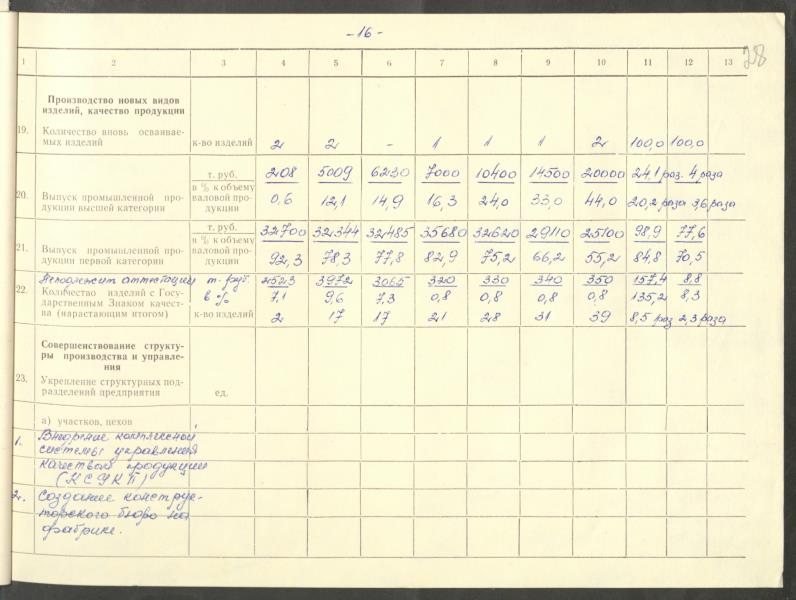 -16-
28
1 2 3 4 5 6 7 8 9 10 11 12 13
Производство новых видов
изделий, качество продукции
19. Количество вновь осваивае-
мых изделий к-во изделий 2 2 - 1 1 1 2 100,0 100,0
т. руб. 208 5009 6230 7000 10400 14500 20000 24,1 раз. 4 раза
20. Выпуск промышленной про-
дукции высшей категории в % к объему
валовой про-
дукции 0,6 12,1 14,9 16,3 24,0 33,0 44,0 20,2 раза 3,6 раза
т. руб. 32700 32344 32485 35680 32620 29110 25100 98,9 77,6
21. Выпуск промышленной про-
дукции первой категории в % к объему
валовой про-
дукции 92,3 78,3 77,8 82,9 75,2 66,2 55,2 84,8 70,5
Неподлежит аттестации т. руб. 2523 3972 3065 320 330 340 350 157,4 8,8
22. Количество изделий с Госу- в % 7,1 9,6 7,3 0,8 0,8 0,8 0,8 135,2 8,3
дарственным Знаком качест-
ва (нарастающим итогом) к-во изделий 2 17 17 21 28 31 39 8,5 раз 2,3 раза
Совершенствование структу-
ры производства и управле-
ния
23. Укрепление структурных под-
разделений предприятия ед.
а) участков, цехов
1. Внедрение комплексной
системы управления
качеством продукции
(КСУКП)
2. Создание конструк-
торского бюро на
фабрике.